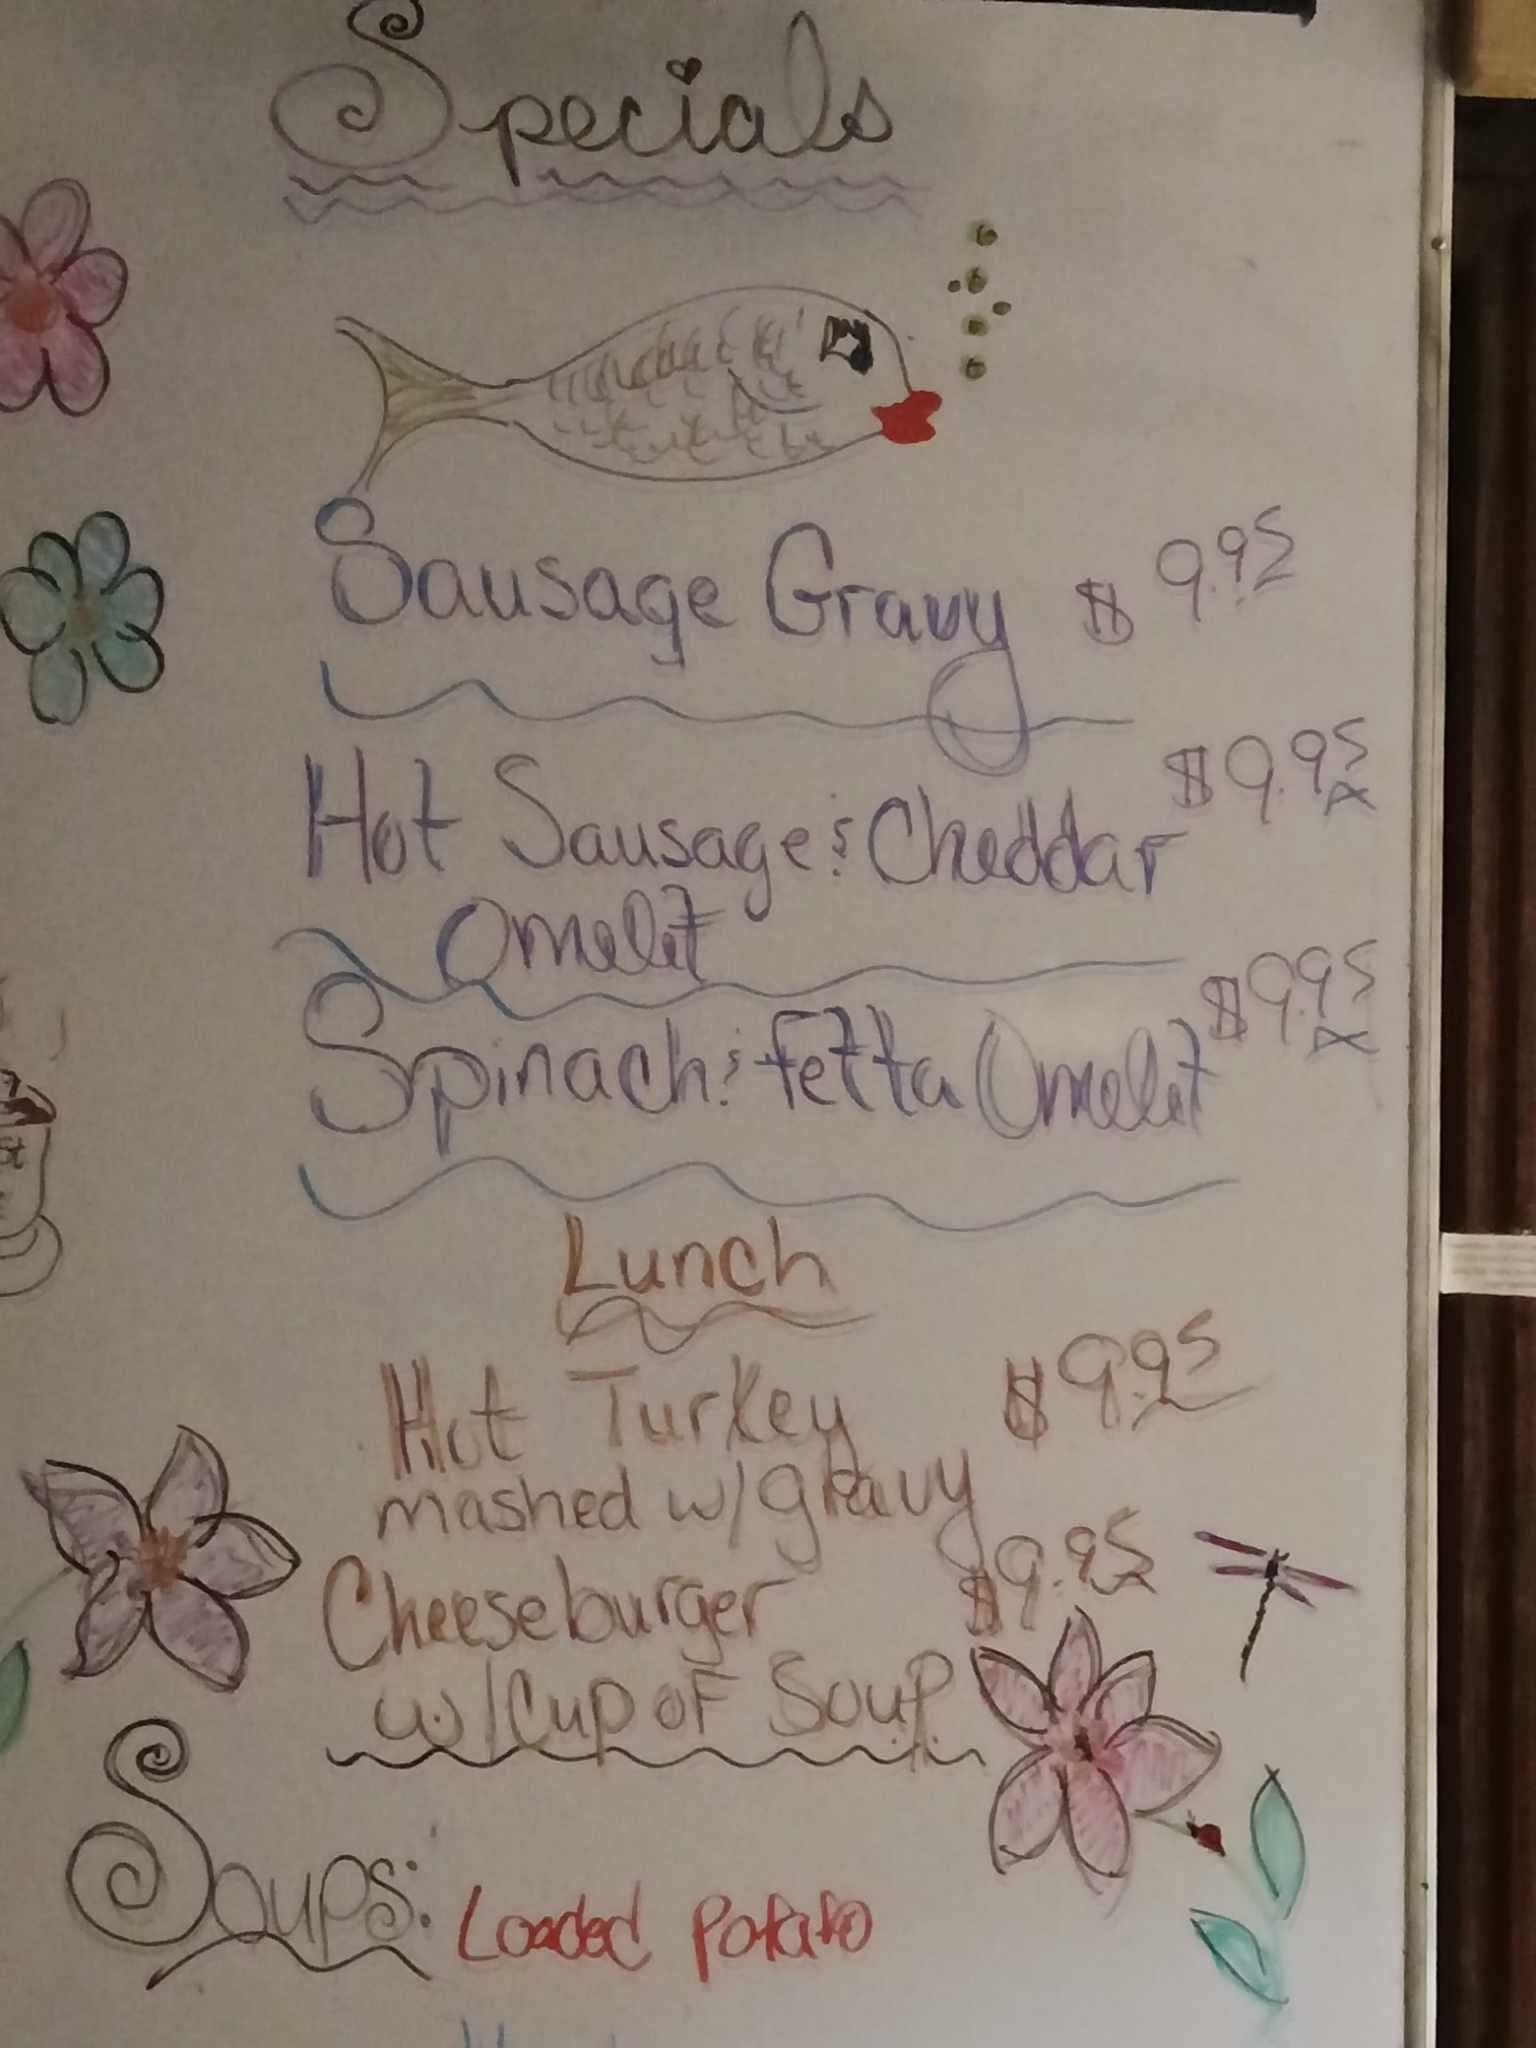 Specials
Sausage Gravy $ 9.95
Hot Sausage & Cheddar $9.95
Omelet
Spinach & Fetta Omelet $9.95
Lunch
Hot Turkey $9.95
mashed w/gravy
Cheeseburger $9.95
w/Cup of Soup
Soups: Loaded Potato